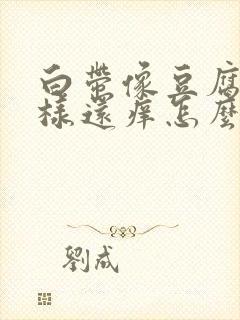 白帶像豆腐
樣還癢怎麼
劉成